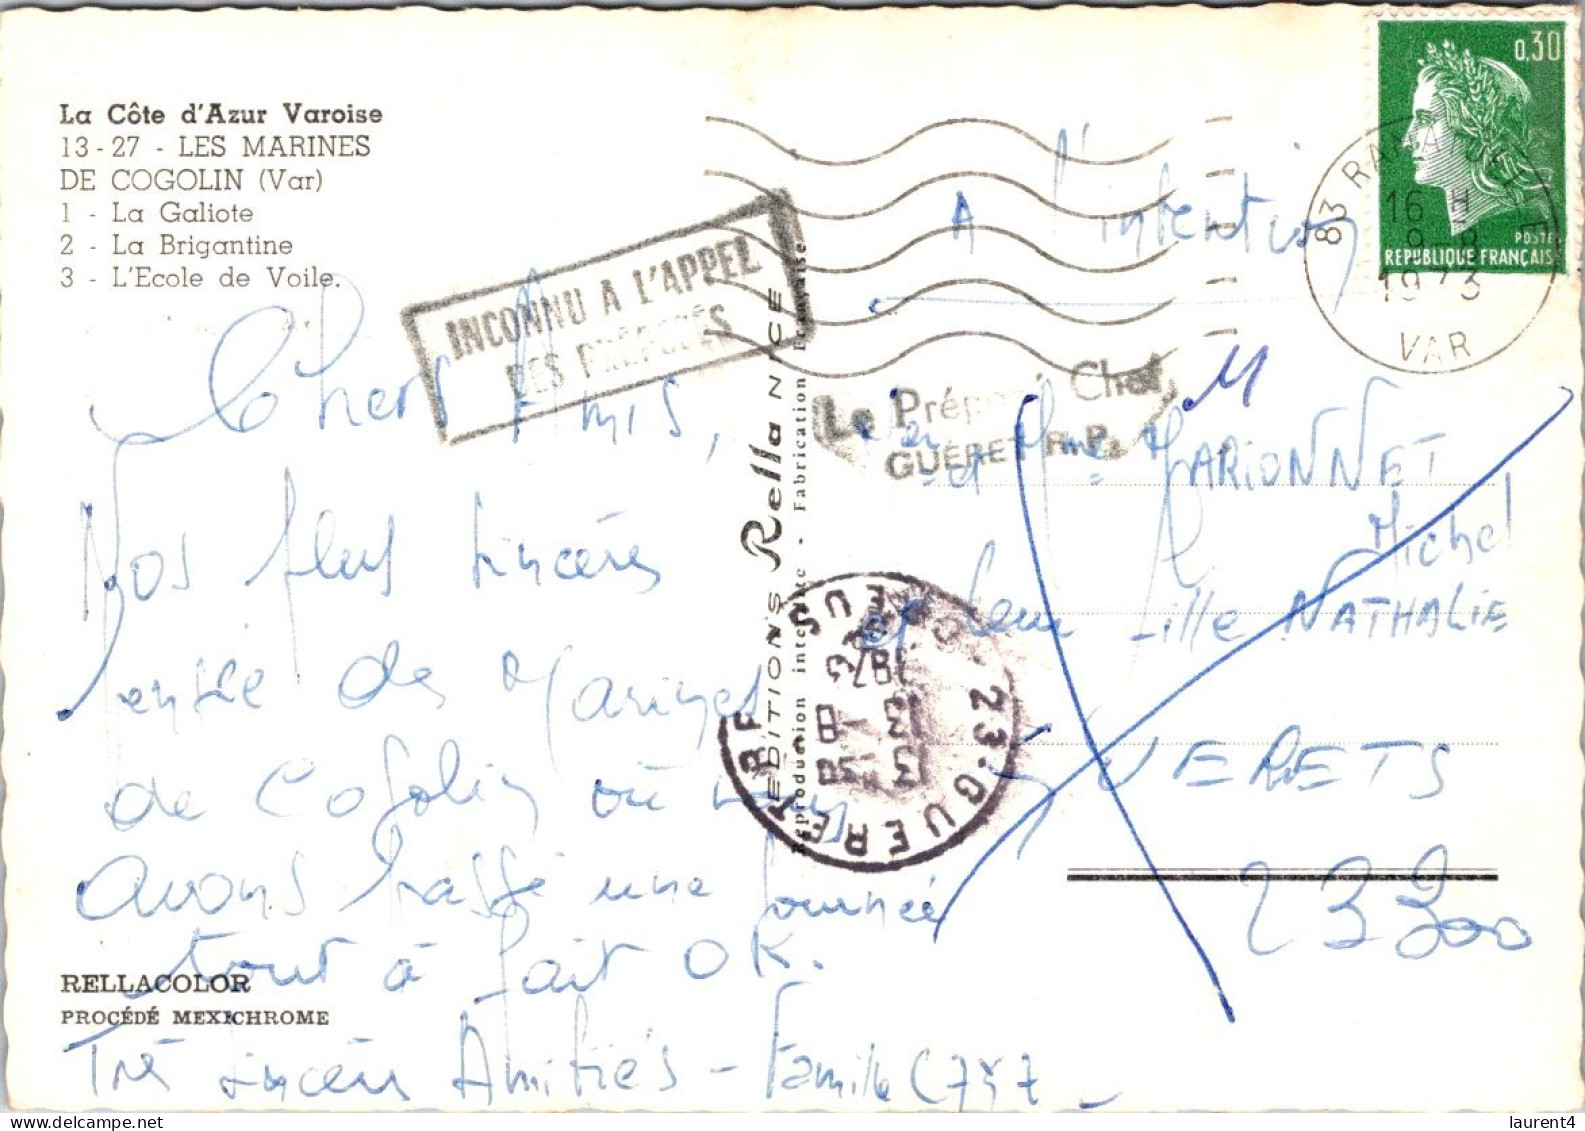 La Côte d'Azur Varoise
13-27 - LES MARINES
DE COGOLIN (Var)
1 - La Galiote
2 - La Brigantine
3 - L'Ecole de Voile.
INCONNU A L'APPEL
DES PRÉPOSÉS
Chers Amis,
Nos plus sincères
de Marines
de Cogolin où nous
avons passé une journée
tout à fait OK.
Très sincères Amitiés - Famille
RELLACOLOR
PROCÉDÉ MEXICHROME
EDITIONS Rella NICE
Reproduction interdite - Fabrication Française
0,30
POSTE
REPUBLIQUE FRANÇAISE
83
16 H
9-8
1973
VAR
A l'intention
Le Préposé Chef
GUERET R.P.
M
et Mme MARIONNET
Michel
et leur fille NATHALIE
GUERETS
23300
23·GUERET
CREUSE
13 H 50
13 -8
1973
laurent4